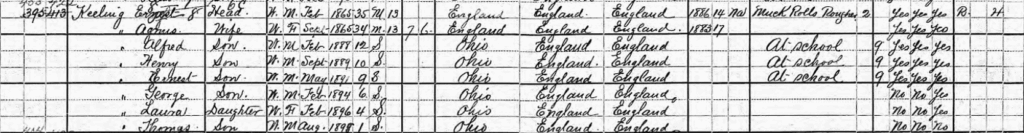 395 413 Keeling Head W. M. Feb 1865 35 M. 13 England England England 1886 14 Na Muck Rolls 2 Yes Yes Yes R. H
" Agnes Wife W. F Sept 1865 34 M. 13 7 6 England England England 1883 17 Yes Yes Yes
" Alfred Son W. M Feb 1888 12 S. Ohio England England At school 9 Yes Yes Yes
" Henry Son W. M Sept 1889 10 S. Ohio England England At school 9 Yes Yes Yes
" Ernest Son. W. M May 1891 9 S Ohio England England At school 9 Yes Yes Yes
" George Son. W. M. Feb 1894 6 S. Ohio England England No No Yes
" Laura Daughter W. F Feb 1896 4 S. Ohio England England No No Yes
" Thomas Son W. M Aug 1898 1 S. Ohio England England No No No